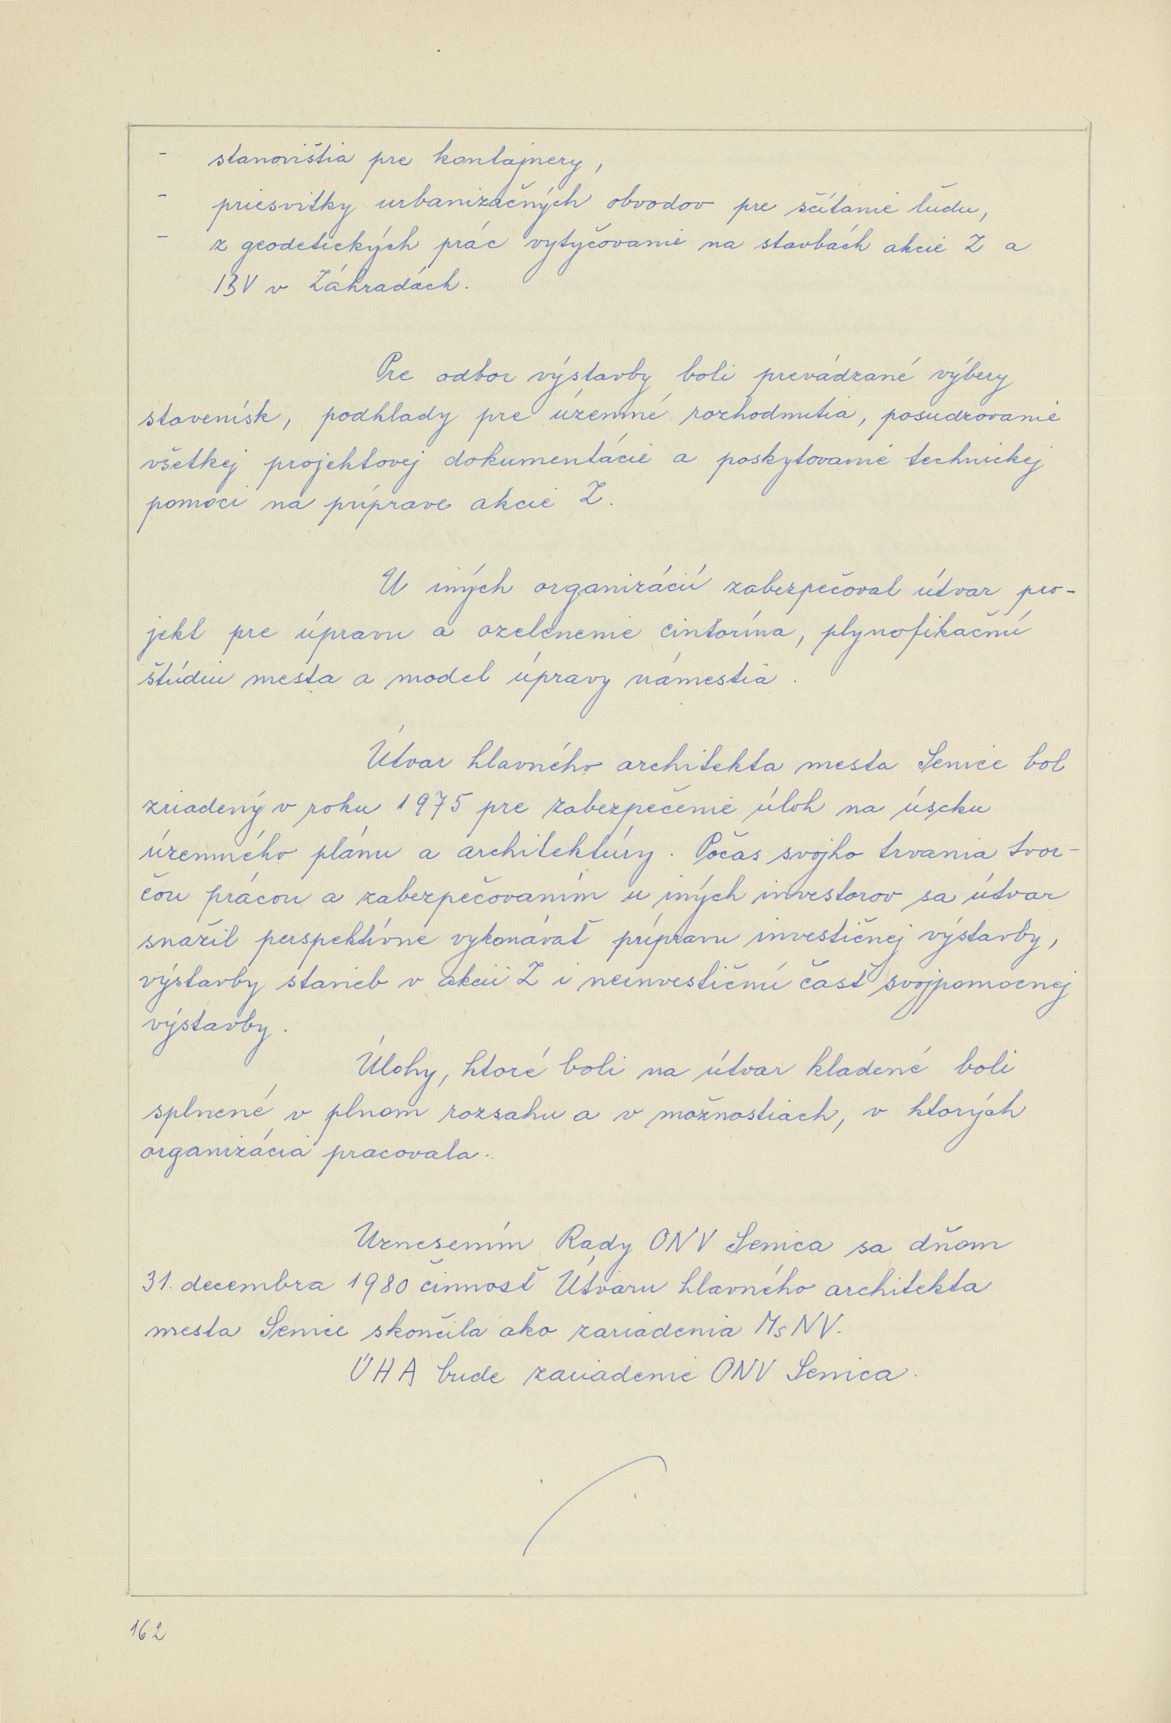 - stanovištia pre kontajnery,
- priesvitky urbanizačných obvodov pre sčítanie ľudu,
- z geodetických prác vytyčovanie na stavbách akcie Z a
IBV v Záhradách.
Pre odbor výstavby boli prevádzané výbery
stavenísk, podhlady pre územné rozhodnutia, posudzovanie
všetkej projektovej dokumentácie a poskytovanie technickej
pomoci na príprave akcie Z.
U iných organizácií zabezpečoval útvar pro-
jekt pre úpravu a ozelenenie cintorína, plynofikačnú
štúdiu mesta a model úpravy námestia.
Útvar hlavného architekta mesta Senice bol
zriadený v roku 1975 pre zabezpečenie úloh na úseku
územného plánu a architektúry. Počas svojho trvania tvor-
čou prácou a zabezpečovaním u iných investorov sa útvar
snažil perspektívne vykonávať prípravu investičnej výstavby,
výstavby stavieb v akcii Z i neinvestičnú časť svojpomocnej
výstavby.
Úlohy, ktoré boli na útvar kladené boli
splnené v plnom rozsahu a v možnostiach, v ktorých
organizácia pracovala.
Uznesením Rady ONV Senica sa dňom
31. decembra 1980 činnosť Útvaru hlavného architekta
mesta Senice skončila ako zariadenia MsNV.
ÚHA bude zariadenie ONV Senica.
162